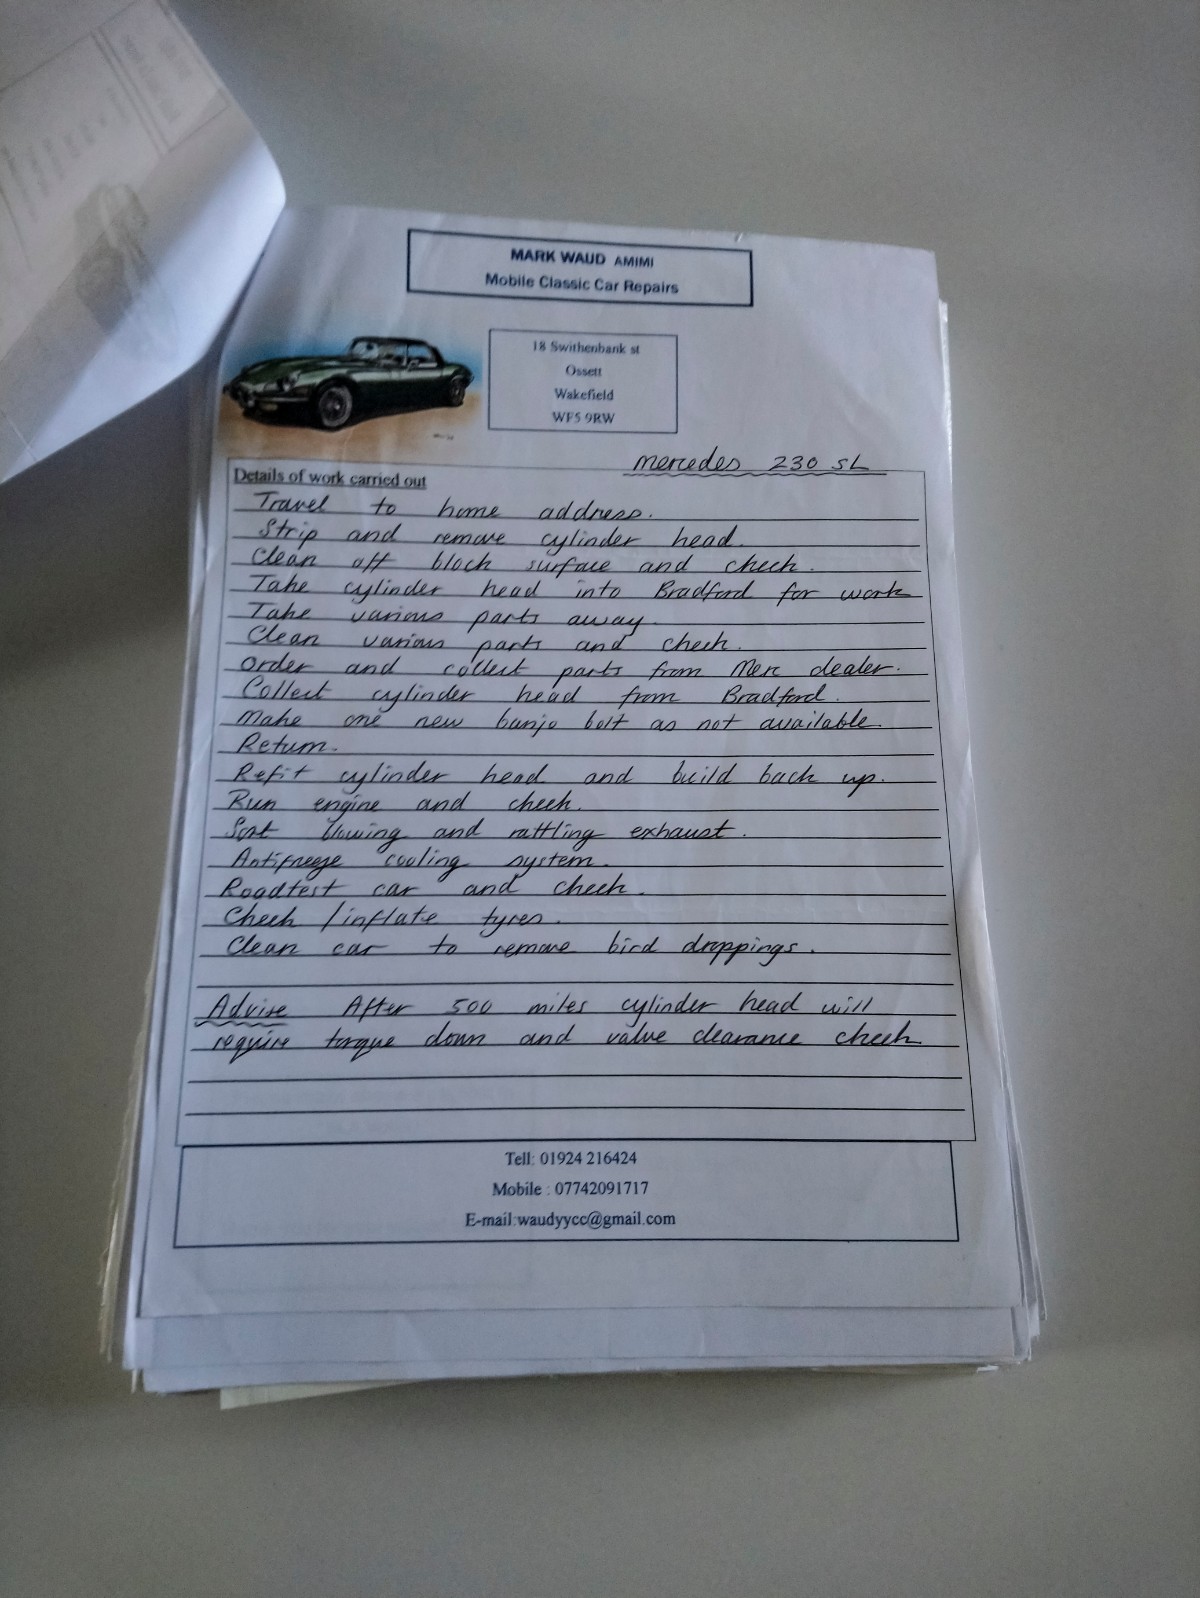 MARK WAUD AMIMI
Mobile Classic Car Repairs
18 Swithenbank st
Ossett
Wakefield
WF5 9RW
Mercedes 230 SL
Details of work carried out
Travel to home address.
Strip and remove cylinder head.
Clean off block surface and check.
Take cylinder head into Bradford for work
Take various parts away.
Clean various parts and check.
Order and collect parts from Merc dealer.
Collect cylinder head from Bradford.
Make one new banjo bolt as not available.
Return.
Refit cylinder head and build back up.
Run engine and check.
Sort blowing and rattling exhaust.
Antifreeze cooling system.
Roadtest car and check.
Check / inflate tyres.
Clean car to remove bird droppings.
Advise After 500 miles cylinder head will
require torque down and valve clearance check
Tell: 01924 216424
Mobile : 07742091717
E-mail:waudyycc@gmail.com